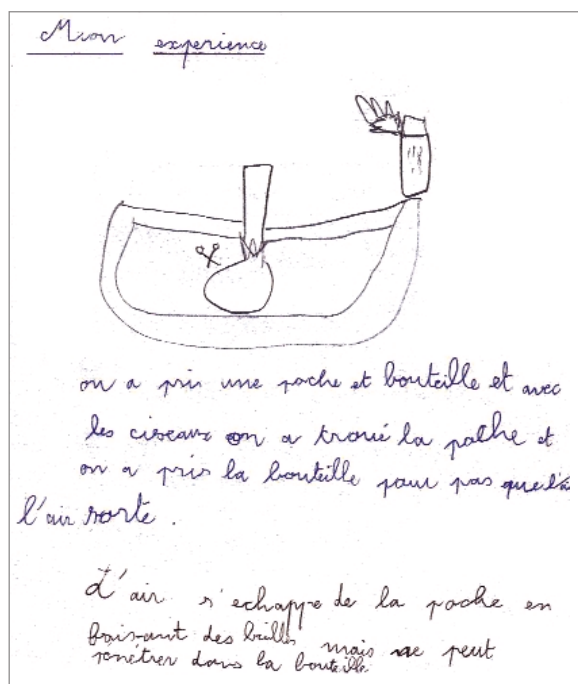 Mon experience
on a pris une poche et bouteille et avec
les ciseaux on a troué la poche et
on a pris la bouteille pour pas que
l'air sorte.
L'air s'echappe de la poche en
faisant des bulles mais ne peut
pénétrer dans la bouteille